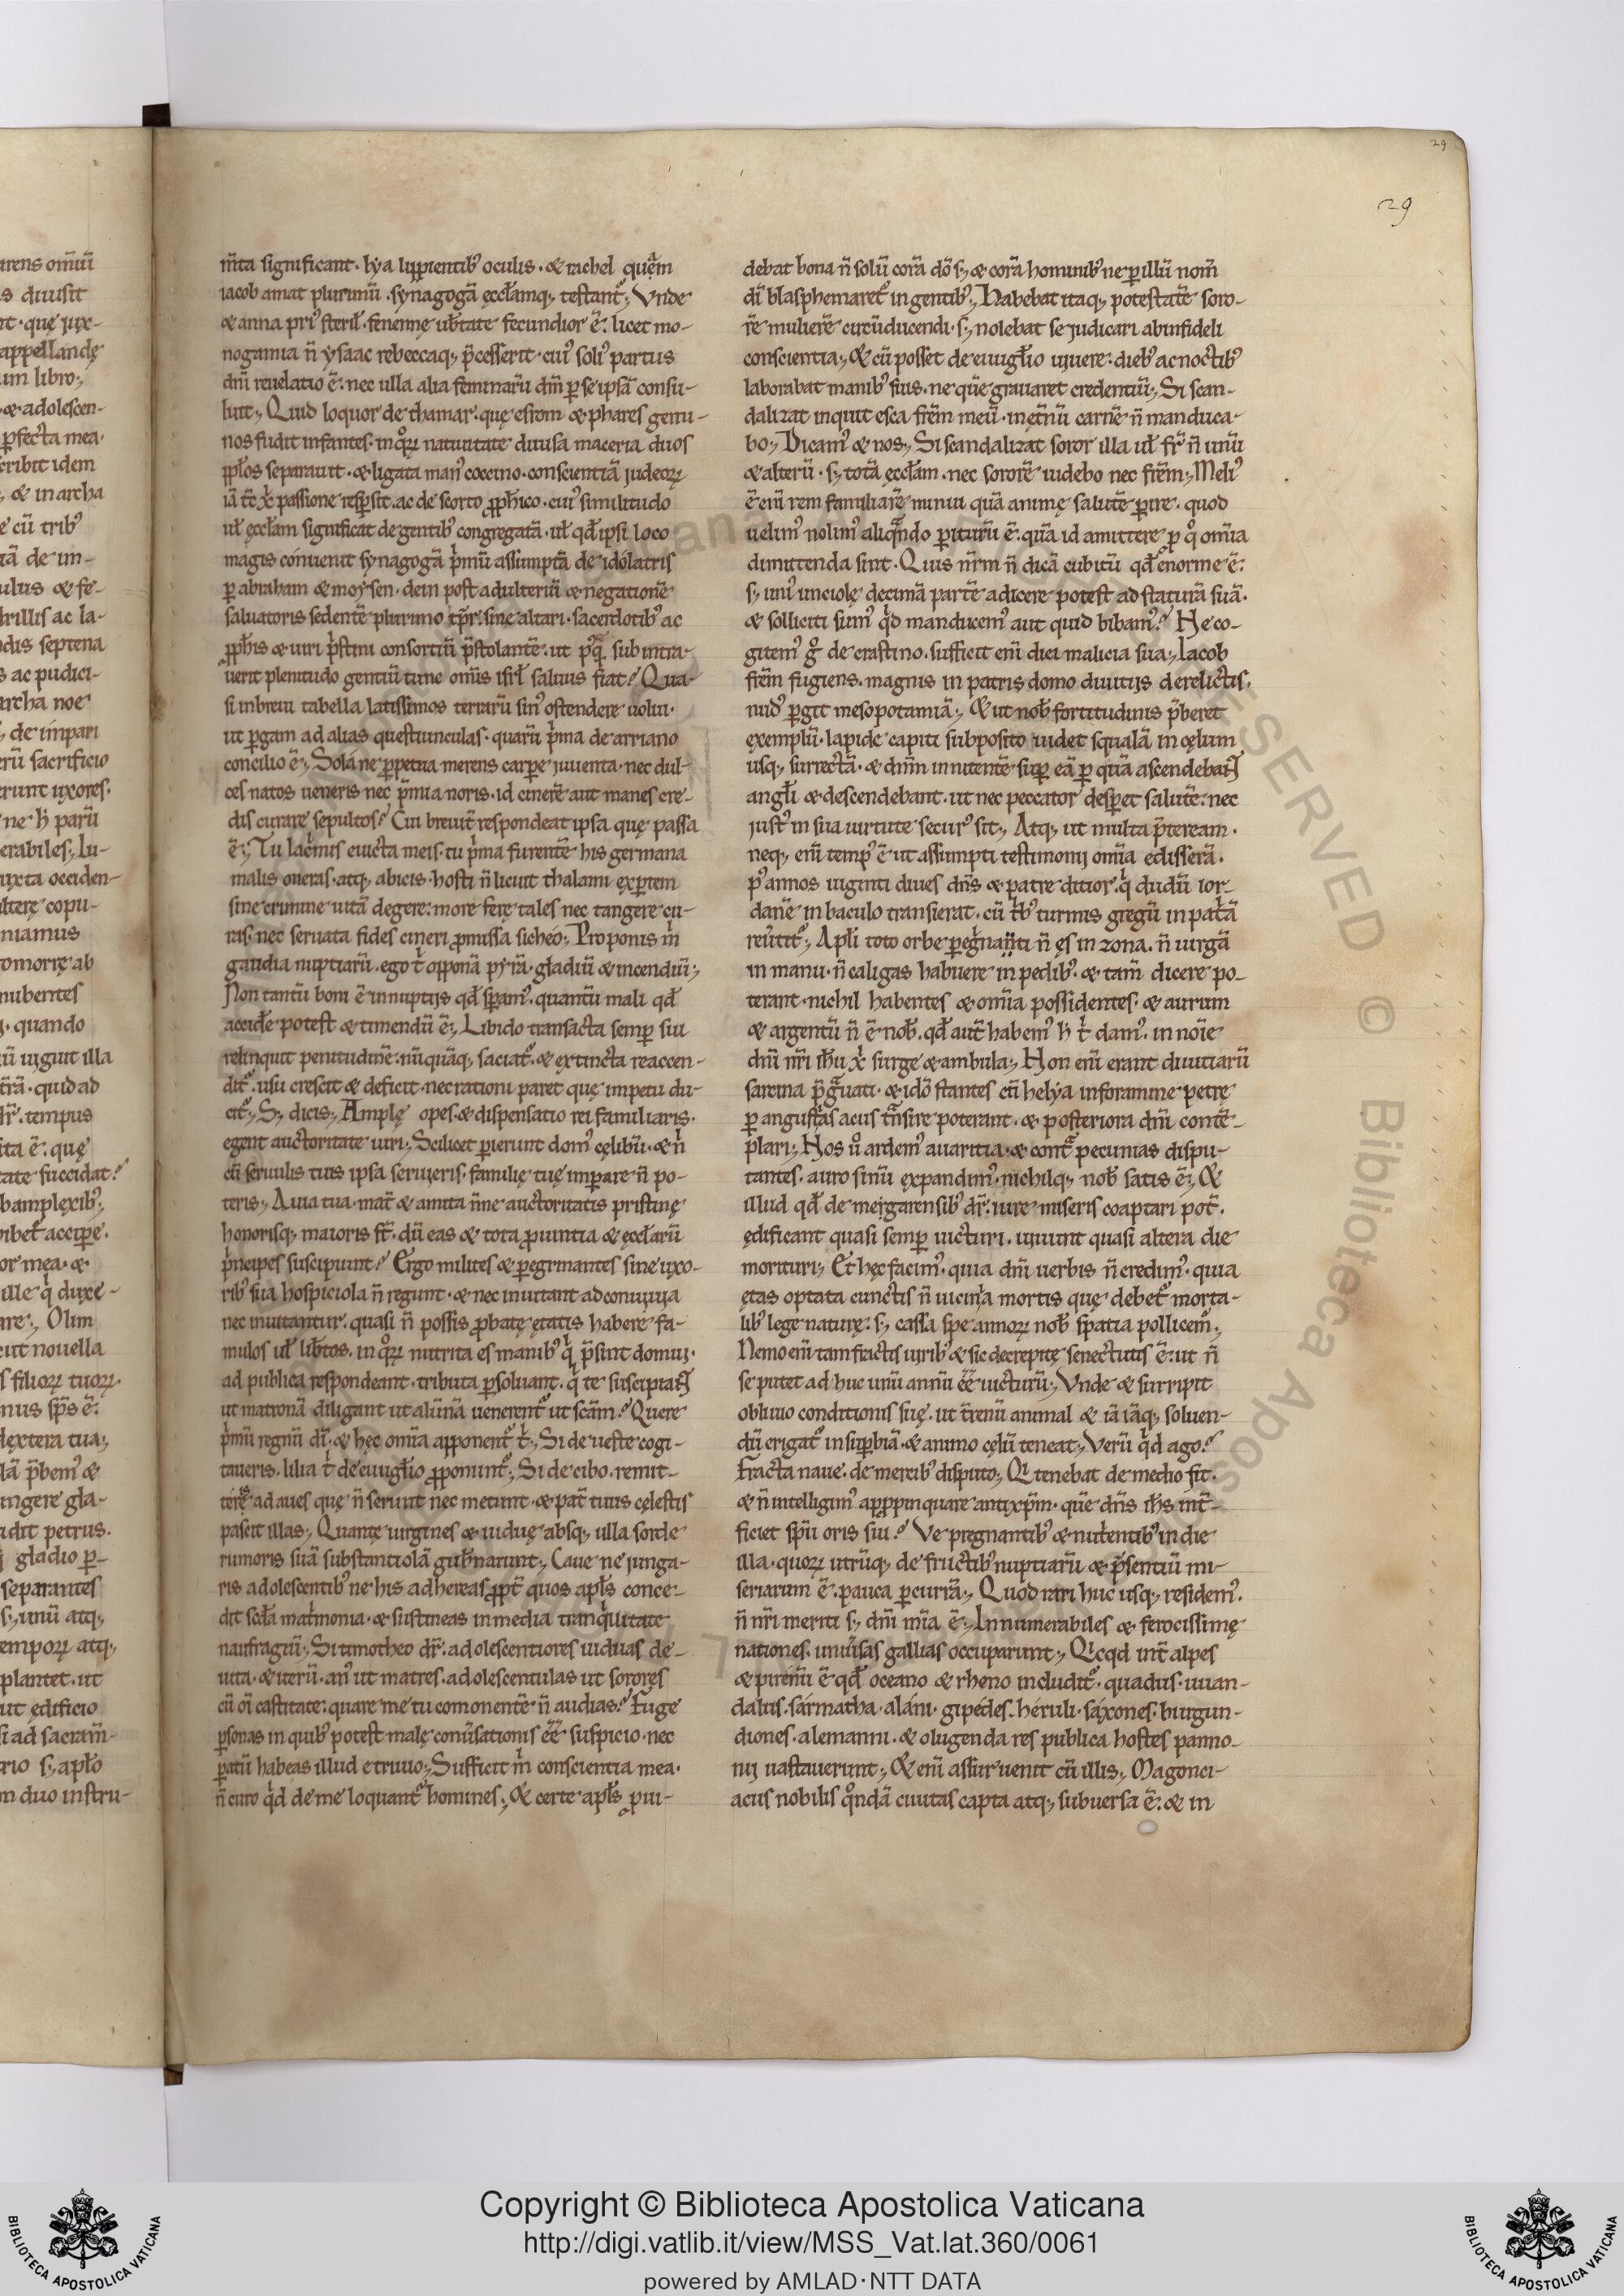 arens om̄iū
s diuisit
nt · quę iux-
appellandę
um libro;
· & adolescen-
ꝑfecta mea·
cribit idem
, & in archa
e cū trib᷒
iā de im-
ulus & fe-
hrillis ac la-
odis septena
s ac pudici-
archa noe
, de impari
erū sacrificio
erunt uxores·
ne h̄ parū
erabiles; Iu-
iuxta occiden-
ulterę copu-
niamus
omorrę ab
nubentes
· quando
ū uiguit illa
t̄rā · quid ad
dr̄ · tempus
ita ē · quę
tate succidat?
bamplexib᷒;
hibet᷒ accipe·
or mea · &
ille q̇ duxe-
are; Olim
cut nouella
s filioꝝ tuoꝝ·
nus sp̄s ē·
dextera tua;
lā p̄bem᷒ &
ungere gla-
udit petrus·
gladio ꝑ-
separantes
s; unū atq;
empoꝝ atq;
plantet · ut
ut ędificio
si ad sacram̄-
rio s; apło
m duo instru-
m̄ta significant · lẏa lippientib᷒ oculis · & rachel quẽm
iacob amat plurimū · sẏnagogā ęccl̄amq; testant᷒; Vnde
& anna pri᷒ steril᷒ · fenennę ub̄tate fecundior ē · licet mo-
nogamia n̄ ẏsaac rebeccaq; p̄cesserit · cui᷒ soli᷒ partus
dn̄i reuelatio ē · nec ulla alia feminarū dn̄m ꝑ se ipsā consu-
luit; Quid loquor de thamar · que esrom & phares gemi-
nos fudit infantes · in q̊ꝝ natiuitate diuisa maceria duos
ppl̄os separauit · & ligata man᷒ coccino · conscientiā iudeoꝝ
iā tc̄ xp̄i passione resꝑsit · ac de scorto ꝓph̄ico · cui᷒ similitudo
ul̄ ęccl̄am significat de gentib᷒ congregatā · ul̄ qd̄ ipsi loco
magis conuenit sẏnagogā p̍mū assumptā de idolatris
ꝑ abraham & moẏsen · dein post adulteriū & negationē
saluatoris sedentē plurimo tp̄r · sine altari · sacerdotib᷒ ac
ꝓph̄is & uiri p̍stini consortiū p̄stolantē · ut p᷒q̄ subintra-
uerit plenitudo gentiū tunc om̄is isrl̄ saluus fiat? Qua-
si inbreui tabella latissimos terrarū sin᷒ ostendere uolui·
ut ꝑgam ad alias questiunculas · quarū p̍ma de arriano
concilio ē; Sola ne ꝑpetua merens carpe iuuenta · nec dul-
ces natos ueneris nec p̄mia noris · id cinerē aut manes cre-
dis curare sepultos? Cui breuit̄ respondeat ipsa quę passa
ē; Tu lac̍mis euicta meis · tu p̍ma furentē his germana
malis oneras · atq; abicis · hosti n̄ licuit thalami exꝑtem
sine crimine uitā degere · more ferę tales nec tangere cu-
ras · nec seruata fides cineri ꝓmissa sicheo; Proponis m̍
gaudia nuptiarū · ego t̍ opponā pẏrā · gladiū & incendiū;
Non tantū boni ē innuptijs qd̄ sꝑam᷒ · quantū mali qd̄
accidē potest & timendū ē; Libido transacta semꝑ sui
relinquit penitudinē · nūquāq; saciat᷒ · & extincta reaccen-
dit᷒ · usu crescit & deficit · nec rationi paret quę impetu du-
cit᷒; S; dicis; Amplę opes · & dispensatio rei familiaris·
egent auctoritate uiri; Scilicet ꝑierunt dom᷒ cęlibū · & n̍
cū seruulis tuis ipsa seruieris · familię tuę imꝑare n̄ po-
teris; Auia tua · mat̄ & amita n̄ne auctoritatis pristinę
honorisq; maioris s̄t · dū eas & tota ꝓuintia & ęccl̄arū
p̍ncipes suscipiunt? Ergo milites & ꝑegrinantes sine uxo-
rib᷒ sua hospiciola n̄ regunt · & nec inuitant ad conuiuia
nec inuitantur · quasi n̄ possis ꝓbatę ętatis habere fa-
mulos ul̄ lib̄tos · in q̊ꝝ nutrita es manib᷒ q̍ p̄sint domui·
ad publica respondeant · tributa ꝑsoluant · q̍ te suscipiant
ut matronā diligant ut alūnā uenerent᷒ ut scām? Quere
p̍mū regnū dī · & hęc om̄ia apponent᷒ t̍; Si de ueste cogi-
taueris · lilia t̍ de euuigłio ꝓponunt᷒; Si de cibo · remit-
terę ad aues quę n̄ serunt nec metunt · & pat̄ tuus cęlestis
pascit illas; Quantę uirgines & uiduę absq; ulla sorde
rumoris suā substantiolā gub̄narunt; Caue ne iunga-
ris adolescentib᷒ ne his adhereas ꝓpt̄ quos apłs conce-
dit scd̄a mat̍monia · & sustineas in media tranq̍llitate
naufragiū; Si timotheo dr̄ · adolescentiores uiduas de-
uita · & iterū · anus ut matres · adolescentulas ut sorores
cū oī castitate · quare me tu comonentē n̄ audias? Fuge
ꝑsonas in quib᷒ potest malę conūsationis eē suspicio · nec
ꝑatū habeas illud e triuio; Sufficit m̍ conscientia mea·
n̄ curo q̍d de me loquant᷒ homines; & certe apłs ꝓui-
29
29
debat bona n̄ solū corā dō s; & corā hominib᷒ ne ꝑ illū nom̄
dī blasphemaret᷒ in gentib᷒; Habebat itaq; potestatē soro-
rē mulierē circūducendi · s; nolebat se iudicari ab infideli
conscientia; & cū posset de euuigłio uiuere · dieb᷒ ac noctib᷒
laborabat manib᷒ suis · ne quē grauaret credentiū; Si scan-
dalizat inquit esca fr̄em meū · in et̄nū carnē n̄ manduca-
bo; Dicam᷒ & nos; Si scandalizat soror illa ul̄ fr̄ n̄ unū
& alterū · s; totā ęccl̄am · nec sororē uidebo nec fr̄em; Meli᷒
ē enī rem familiarē minui quā animę salutē ꝑire · quod
uelim᷒ nolim᷒ aliqn̄do ꝑiturū ē · quā id amittere ꝓ q̊ om̄ia
dimittenda sint · Quis nr̄m n̄ dicā cubitū qd̄ enorme ē·
s; uni᷒ unciolę decimā partē adicere potest ad staturā suā·
& solliciti sum᷒ q̍d manducem᷒ aut quid bibam᷒? Ne co-
gitem᷒ g̊ de crastino · sufficit enī diei malicia sua; Iacob
fr̄em fugiens · magnis in patris domo diuitijs derelictis·
nud᷒ ꝑgit mesopotamiā; & ut nob̄ fortitudinis p̄beret
exemplū · lapide capiti subposito uidet squalā in cęlum
usq; surrectā · & dn̄m innitentē suꝑ eā ꝑ quā ascendebant
angl̄i & descendebant · ut nec peccator desꝑet salutē · nec
iust᷒ in sua uirtute secur᷒ sit; Atq; ut multa p̄teream·
neq; enī temp᷒ ē ut assumpti testimonij om̄ia edisserā·
p᷒ annos uiginti diues dn̄s & patre ditior · q̍ dudū ior-
danē in baculo transierat · cū t̍b᷒ turmis gregū in pat̍ā
reūtit᷒; Apłi toto orbe ꝑegrinanti n̄ ęs in zona · n̄ uirgā
in manu · n̄ caligas habuere in pedib᷒ · & tam̄ dicere po-
terant · nichil habentes & om̄ia possidentes · & aurum
& argentū n̄ ē nob̄ · qd̄ aut̄ habem᷒ h̄ t̍ dam᷒ · in noīe
dn̄i nr̄i ih̄u xp̄i surge & ambula; Non enī erant diuitiarū
sarcina p̄grauati · & idō stantes cū helẏa in foramine petrę
ꝑ angustias acus trāsire poterant · & posteriora dn̄i contē-
plari; Nos ů ardem᷒ auaritia · & contra pecunias dispu-
tantes · auro sinū expandim᷒ · nichilq; nob̄ satis ē; &
illud qd̄ de megarensib᷒ dr̄ · iure miseris coaptari pot̄·
ędificant quasi semꝑ uicturi · uiuunt quasi altera die
morituri; Et hęc facim᷒ · quia dn̄i uerbis n̄ credim᷒ · quia
ętas optata cunctis n̄ uicina mortis quę debet᷒ morta-
lib᷒ lege naturę · s; cassa spe annoꝝ nob̄ spatia pollicem᷒;
Nemo enī tam fractis uirib᷒ & sic decrepitę senectutis ē · ut n̄
se putet ad huc unū annū eē uicturū; Vnde & surripit
obliuio conditionis suę · ut t̄renū animal & iā iāq; soluen-
dū erigat᷒ in suꝑbiā · & animo cęlū teneat; Verū q̍d ago?
Fracta naue · de mercib᷒ disputo; Qi tenebat de medio fit·
& n̄ intelligim᷒ appropinquare antixp̄m · quē dn̄s ih̄s int̄-
ficiet sp̄u oris sui? Ve pregnantib᷒ & nut̍entib᷒ in die
illa · quoꝝ utrūq; de fructib᷒ nuptiarū & p̄sentiū mi-
seriarum ē · pauca ꝑcurrā; Quod rari huc usq; residem᷒·
n̄ nr̄i meriti s; dn̄i mīa ē; Innumerabiles & ferocissimę
nationes · uniūsas gallias occuparunt; Qicqd int̄ alpes
& pirenēū ē qd̄ oceano & rheno includit᷒ · quadus · uuan-
dalus · sarmatha · alani · gipedes · heruli · saxones · burgun-
diones · alemanni · & olugenda res publica hostes panno-
nij uastauerunt; & enī assur uenit cū illis; Magonci-
acus nobilis q̊ndā ciuitas capta atq; subuersa ē · & in
Copyright © Biblioteca Apostolica Vaticana
http://digi.vatlib.it/view/MSS_Vat.lat.360/0061
powered by AMLAD·NTT DATA
BIBLIOTECA APOSTOLICA VATICANA
BIBLIOTECA APOSTOLICA VATICANA